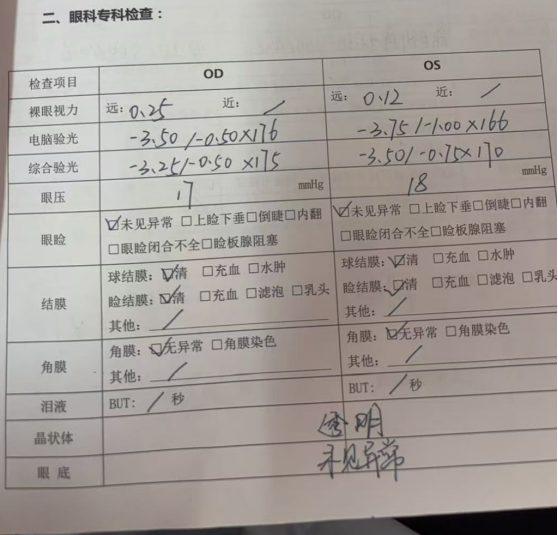 二、眼科专科检查：
检查项目 OD OS
裸眼视力 远：0.25 近：/ 远：0.12 近：/
电脑验光 -3.50/-0.50×176 -3.75/-1.00×166
综合验光 -3.25/-0.50×175 -3.50/-0.75×170
眼压 17 mmHg 18 mmHg
眼睑 ☑未见异常 □上睑下垂□倒睫□内翻 ☑未见异常 □上睑下垂□倒睫□内翻
□眼睑闭合不全□睑板腺阻塞 □眼睑闭合不全□睑板腺阻塞
结膜 球结膜：☑清 □充血 □水肿 球结膜：☑清 □充血 □水肿
睑结膜：☑清 □充血 □滤泡 □乳头 睑结膜：☑清 □充血 □滤泡 □乳头
其他：/ 其他：/
角膜 角膜：☑无异常 □角膜染色 角膜：☑无异常 □角膜染色
其他：/ 其他：/
泪液 BUT：/ 秒 BUT：/ 秒
晶状体 透明
眼底 未见异常